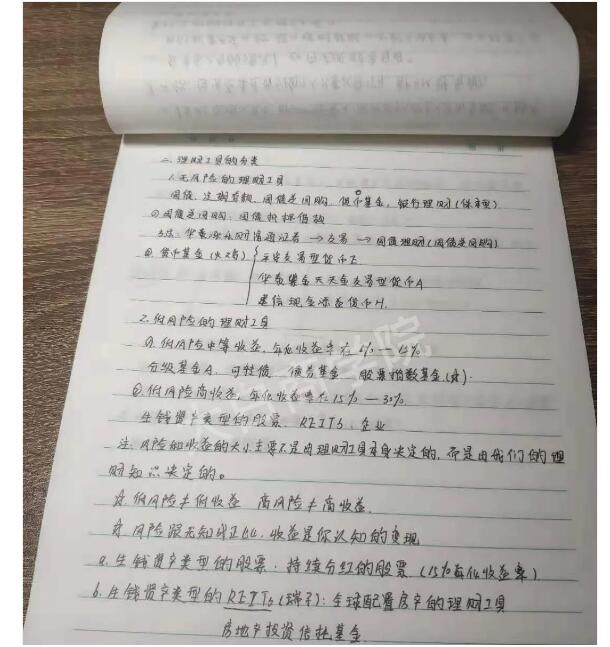 二、理财工具的分类
1.无风险的理财工具
国债、定期存款、国债逆回购、货币基金、银行理财(保本型)
①国债逆回购:国债抵押借款
方法:华泰涨乐财富通证券 → 交易 → 国债理财(国债逆回购)
② 货币基金(火3有) 平安交易型货币E
华泰紫金天天金交易型货币A
建信现金添益货币H.
2.低风险的理财工具
①.低风险中等收益,年化收益率在6%—15%
分级基金A、可转债、债券基金、股票指数基金(定).
②.低风险高收益,年化收益率在15%—30%
生钱资产类型的股票、REITS、企业
注:风险和收益的大小主要不是由理财工具本身决定的,而是由我们的理
财知识决定的。
☆.低风险≠低收益 高风险≠高收益.
☆.风险跟无知成正比,收益是你认知的变现
a.生钱资产类型的股票:持续分红的股票.(15%年化收益率)
b.生钱资产类型的REITs(瑞子):全球配置房产的理财工具
房地产投资信托基金.
商学院